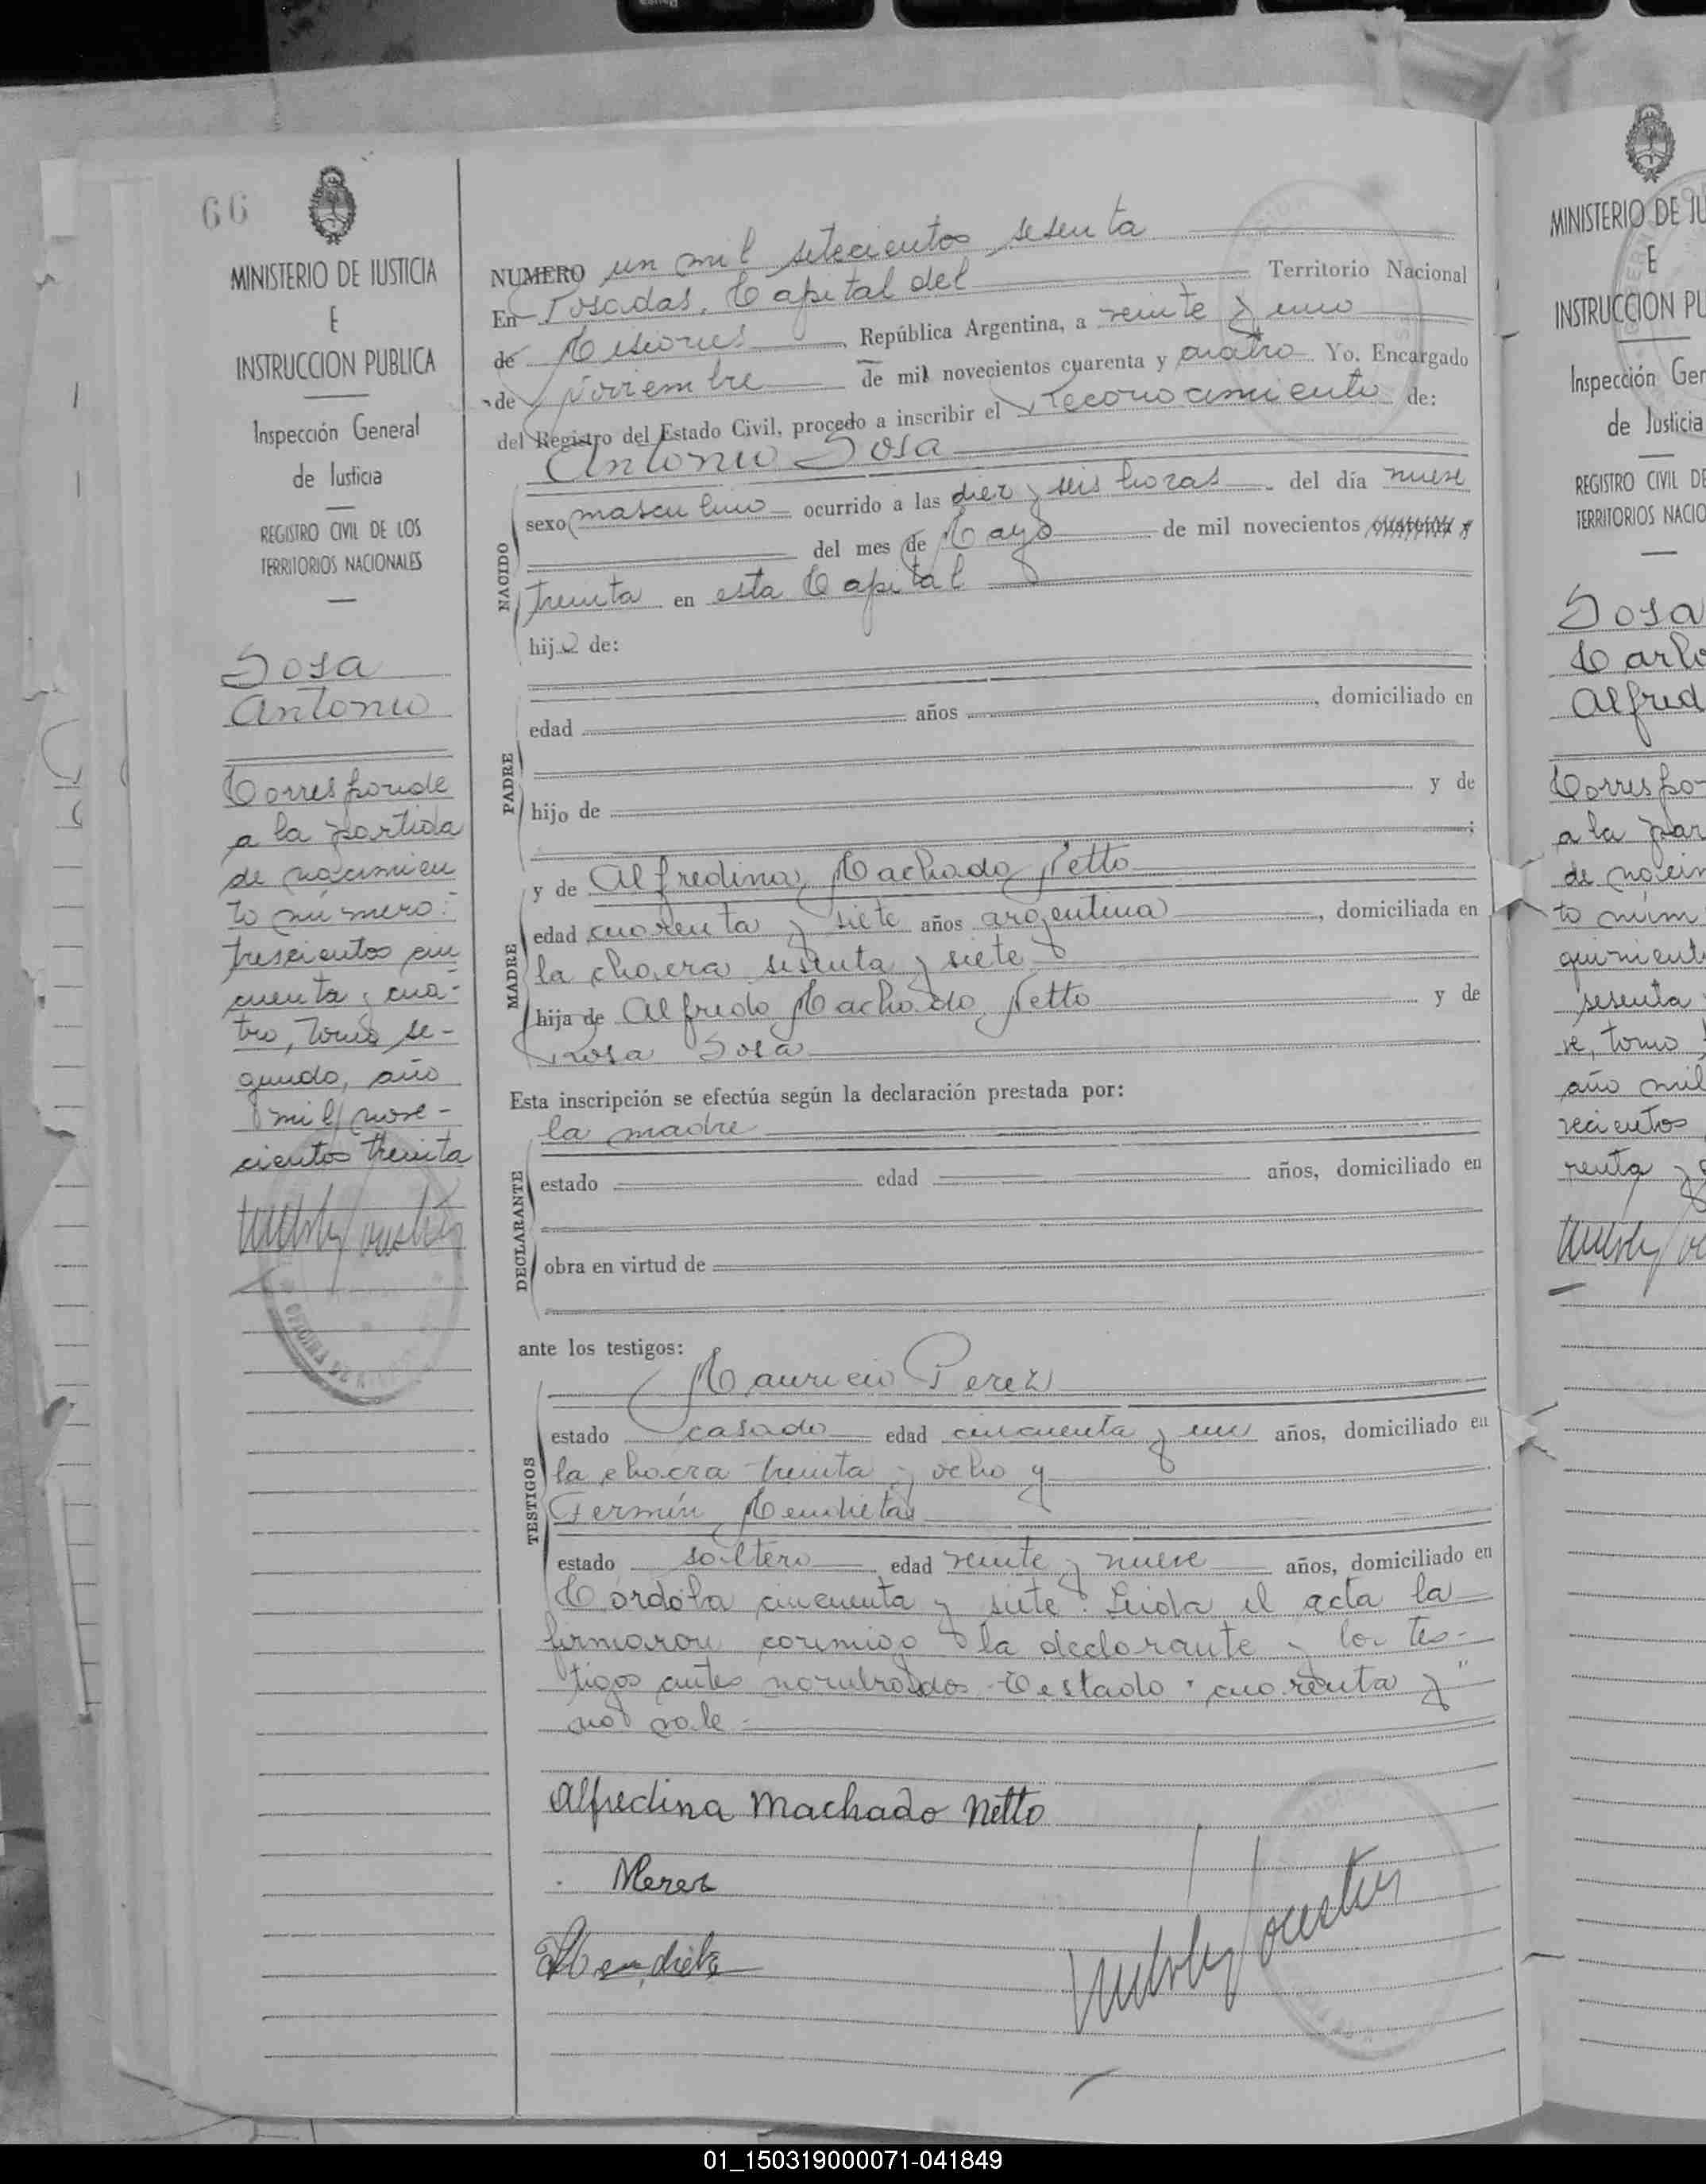 66
MINISTERIO DE JUSTICIA
E
INSTRUCCION PUBLICA
Inspección General
de Justicia
REGISTRO CIVIL DE LOS
TERRITORIOS NACIONALES
Sosa
Antonio
Corresponde
a la partida
de nacimien
to número:
trescientos cin
cuenta y cua-
tro, tomo se-
gundo, año
mil nove-
cientos treinta
NUMERO un mil setecientos sesenta
En Posadas, Capital del Territorio Nacional
de Misiones, República Argentina, a veinte y uno
de Noviembre de mil novecientos cuarenta y cuatro Yo, Encargado
del Registro del Estado Civil, procedo a inscribir el Reconocimiento de:
Antonio Sosa
NACIDO
sexo masculino ocurrido a las diez y seis horas del día nueve
del mes de Mayo de mil novecientos cuarenta y
treinta en esta Capital
hijo de:
PADRE
edad años, domiciliado en
hijo de y de
;
MADRE
y de Alfredina Machado Netto
edad cuarenta y siete años argentina, domiciliada en
la chacra sesenta y siete
hija de Alfredo Machado Netto y de
Rosa Sosa
Esta inscripción se efectúa según la declaración prestada por:
DECLARANTE
la madre
estado edad años, domiciliado en
obra en virtud de
ante los testigos:
TESTIGOS
Mauricio Perez
estado casado edad cincuenta y un años, domiciliado en
la chacra treinta y ocho y
Fermín Mendieta
estado soltero edad veinte y nueve años, domiciliado en
Córdoba cincuenta y siete. Leida el acta la
firmaron conmigo la declarante y los tes-
tigos antes nombrados. Testado "cuarenta y"
no vale.
Alfredina Machado Netto
MPerez
Mendieta
MINISTERIO DE JU
E
INSTRUCCION PU
Inspección Ger
de Justicia
REGISTRO CIVIL DE
TERRITORIOS NACIO
Sosa
Carlo
Alfred
Correspo-
a la par
de nacim
to núm
quinient
sesenta
ve, tomo
año mil
vecientos
renta y
01_150319000071-041849